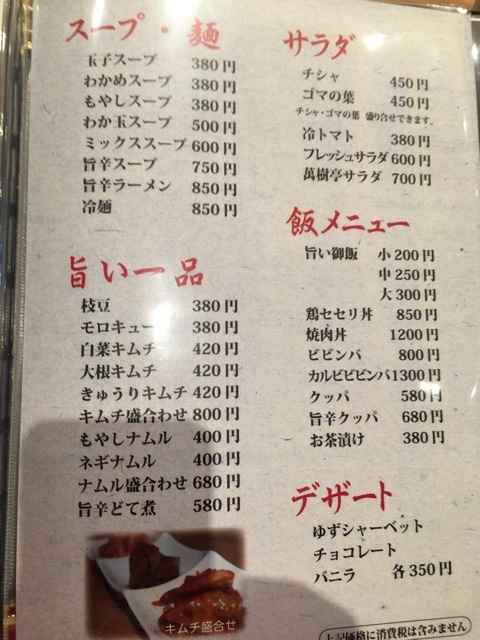 スープ・麺
玉子スープ 380円
わかめスープ 380円
もやしスープ 380円
わか玉スープ 500円
ミックススープ 600円
旨辛スープ 750円
旨辛ラーメン 850円
冷麺 850円
旨い一品
枝豆 380円
モロキュー 380円
白菜キムチ 420円
大根キムチ 420円
きゅうりキムチ 420円
キムチ盛合わせ 800円
もやしナムル 400円
ネギナムル 400円
ナムル盛合わせ 680円
旨辛どて煮 580円
キムチ盛合せ
サラダ
チシャ 450円
ゴマの葉 450円
チシャ・ゴマの葉 盛り合せできます。
冷トマト 380円
フレッシュサラダ 600円
萬樹亭サラダ 700円
飯メニュー
旨い御飯 小200円
中250円
大300円
鶏セセリ丼 850円
焼肉丼 1200円
ビビンバ 800円
カルビビビンバ 1300円
クッパ 580円
旨辛クッパ 680円
お茶漬け 380円
デザート
ゆずシャーベット
チョコレート
バニラ 各350円
上記価格に消費税は含みません